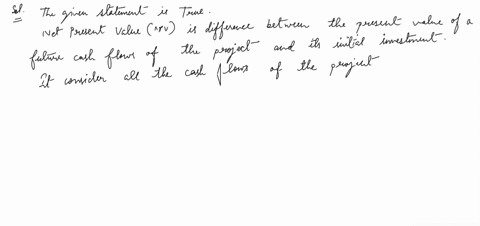 Sol. The given statement is True.
Net Present Value (NPV) is difference between the present value of a
future cash flows of the project and its initial investment.
It consider all the cash flows of the project